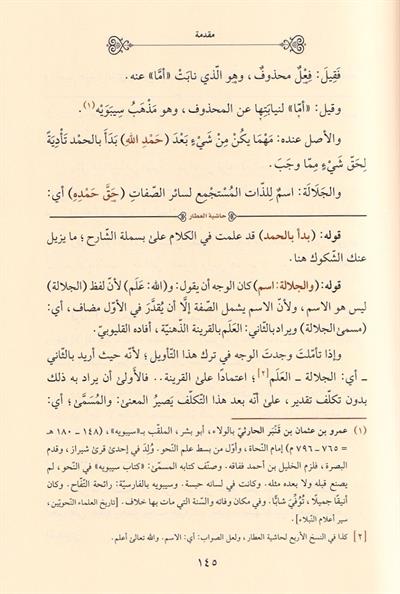 مقدمة
فَقِيلَ: فِعْلٌ محذوفٌ، وهو الّذي نابَتْ «أمَّا» عنه.
وقيل: «أمّا» لنيابَتِها عن المحذوف، وهو مَذْهَبُ سِيبَوَيْهِ(١).
والأصل عنده: مَهْمَا يكُنْ مِنْ شَيْءٍ بَعْدَ (حَمْدِ اللهِ) بَدَأَ بالحمْد تَأْدِيَةً
لِحَقّ شَيْءٍ مِمّا وجَبَ.
والجَلَالَة: اسمٌ لِلذّات المُسْتَجْمِعِ لسائر الصّفاتِ (حَقَّ حَمْدِهِ) أي:
حاشية العطار
قوله: (بدأ بالحمد) قد علمت في الكلام على بسملة الشّارح؛ ما يزيل
عنك الشّكوك هنا.
قوله: (والجلالة: اسم) كان الوجه أن يقول: و(الله: عَلَم) لأنّ لفظ (الجلالة)
ليس هو الاسم، ولأنّ الاسم يشمل الصّفة إلَّا أن يُقدَّر في الأوّل مضاف، أي:
(مسمى الجلالة) ويراد بالثّاني: العَلَم بالقرينة الذّهنيّة، أفاده القليوبيّ.
وإذا تأمّلتَ وجدتَ الوجه في ترك هذا التّأويل؛ لأنّه حيث أريد بالثّاني
ـ أي: الجلالة ـ العَلَم[٢]؛ اعتمادًا على القرينة.. فالأَولى أن يراد به ذلك
بدون تكلّف تقدير، على أنّه بعد هذا التّكلّف يَصيرُ المعنى: والمُسَمَّى؛ أي:
(١) عمرو بن عثمان بن قَنْبَر الحارثيّ بالولاء، أبو بشر، الملقّب بـ«سيبويه»، (١٤٨ ـ ١٨٠ هـ
= ٧٦٥ ـ ٧٩٦ م) إمام النّحاة، وأوّل من بسط علم النّحو. وُلِدَ في إحدى قرى شيراز، وقدم
البصرة، فلزم الخليل بن أحمد ففاقه. وصنّف كتابه المسمّى: «كتاب سيبويه» في النّحو، لم
يصنع قبله ولا بعده مثله. وكانت في لسانه حبسة. وسيبويه بالفارسيّة: رائحة التّفّاح. وكان
أنيقًا جميلًا، تُوُفِّيَ شابًّا. وفي مكان وفاته والسّنة التي مات بها خلاف. [تاريخ العلماء النّحويّين،
سير أعلام النّبلاء].
[٢] كذا في النسخ الأربع لحاشية العطار، ولعل الصواب: أي: الاسم. والله تعالى أعلم.
١٤٥